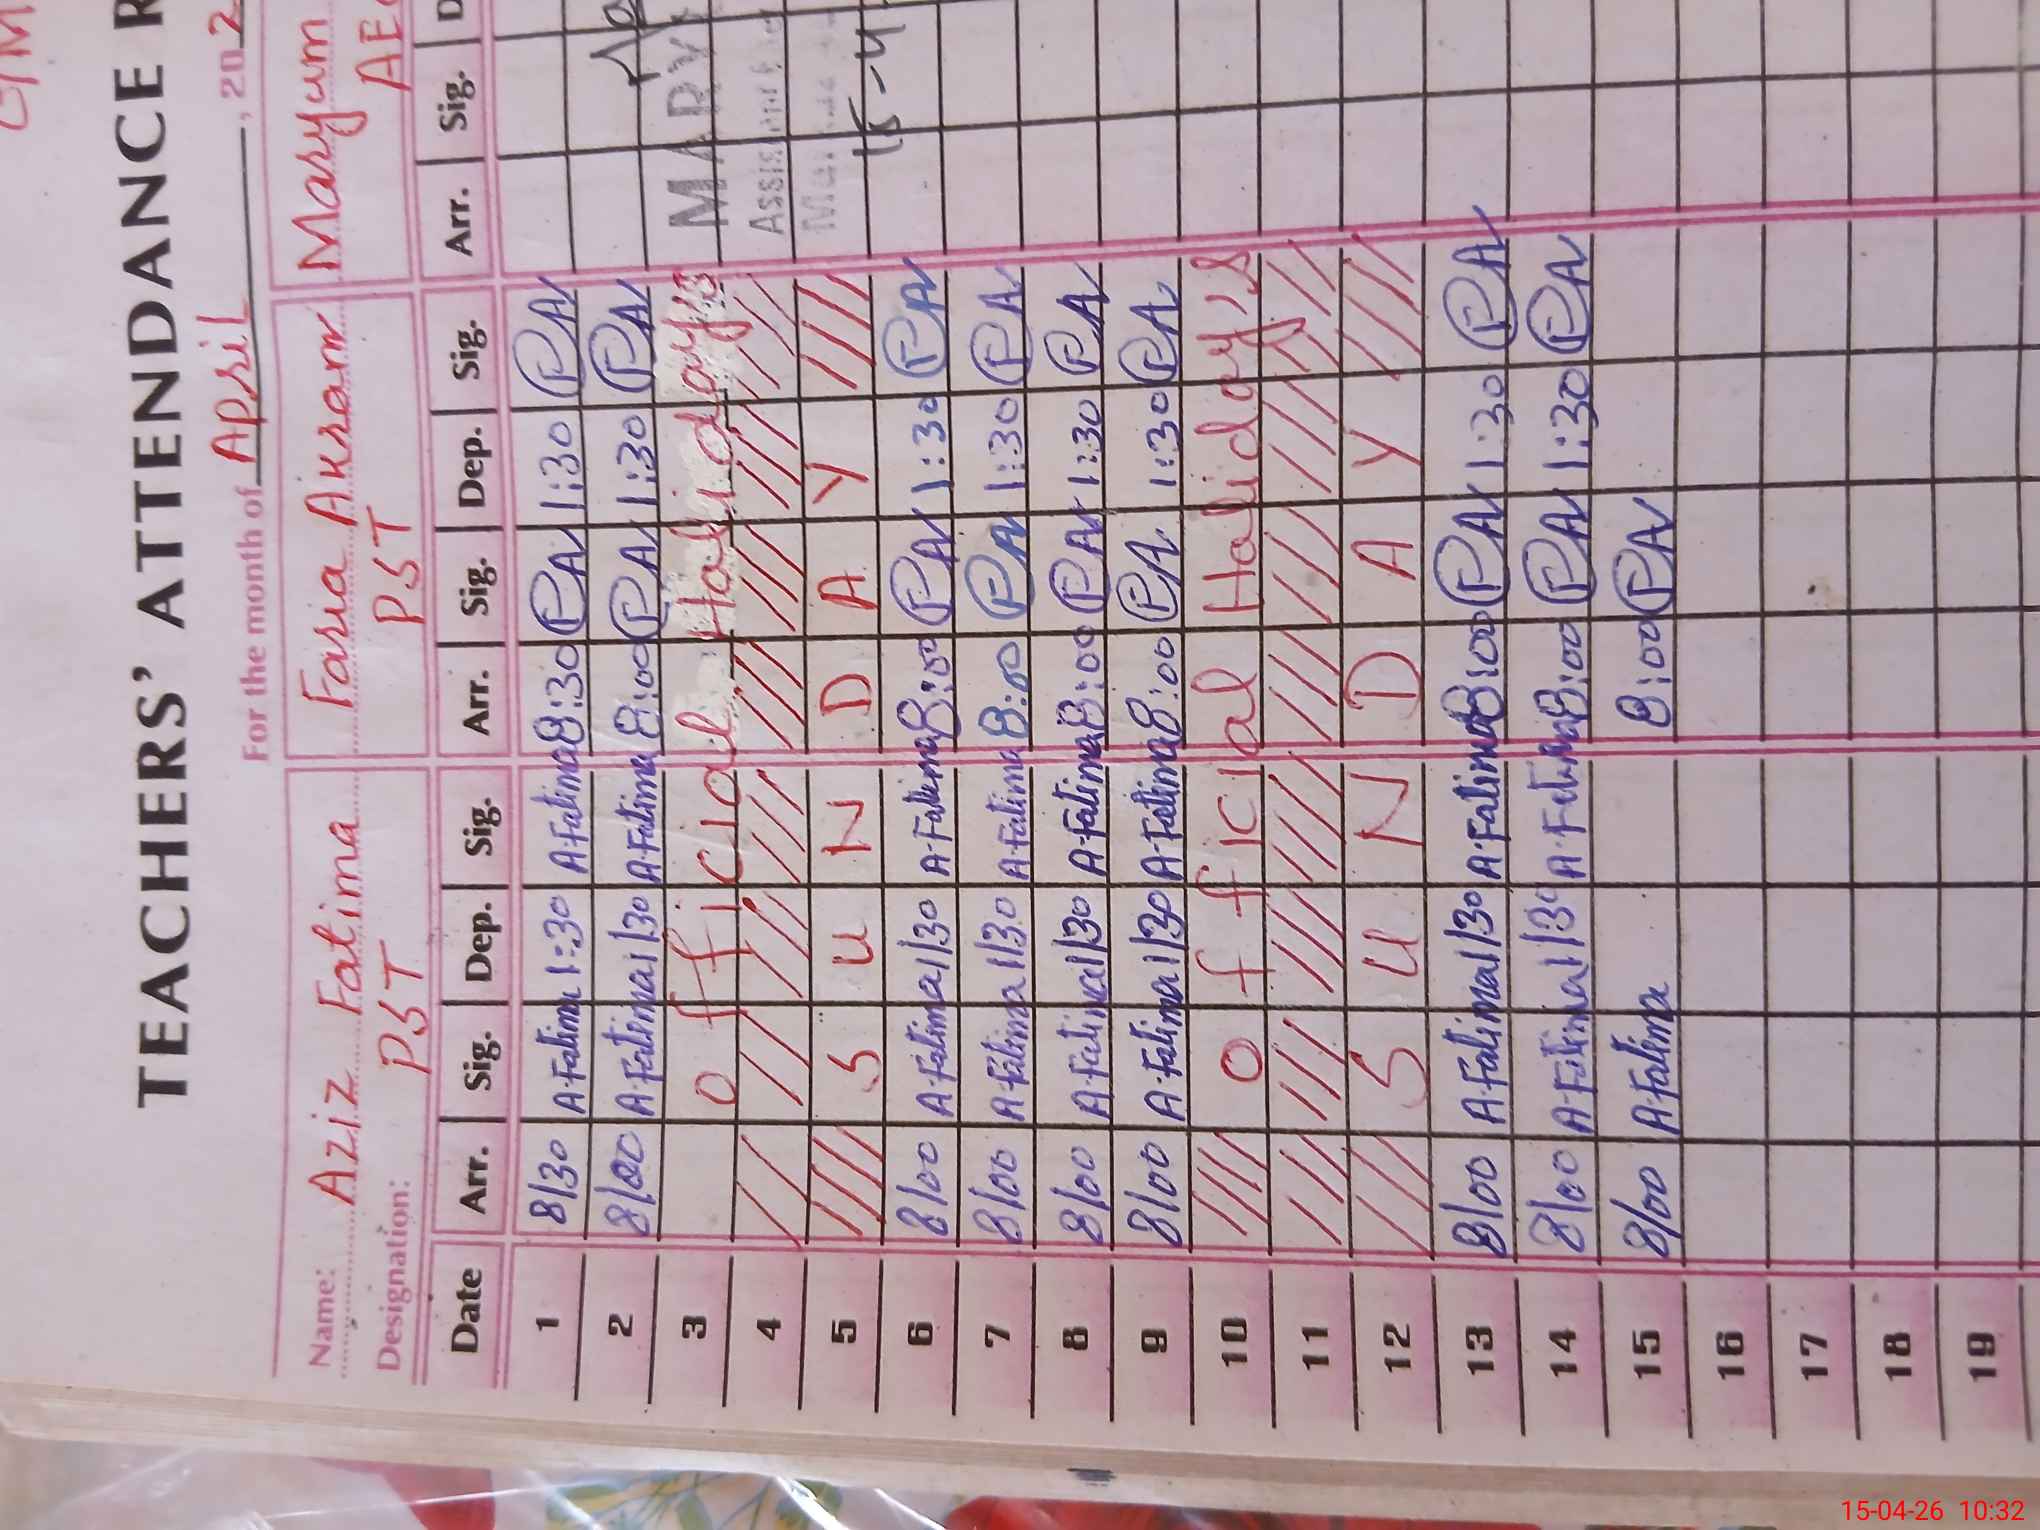 TEACHERS' ATTENDANCE R
For the month of April, 202
Name: Aziz Fatima Faria Akram Maryum
Designation: PST PST AE
Date Arr. Sig. Dep. Sig. Arr. Sig. Dep. Sig. Arr. Sig. D
1 8/30 A.Fatima 1:30 A.Fatima 8:30 PA 1:30 PA
2 8/00 A.Fatima 1/30 A.Fatima 8:00 PA 1:30 PA
3 Official Holidays MARY
4
5 SUNDAY
6 8/00 A.Fatima 1/30 A.Fatima 8:00 PA 1:30 PA 15-4
7 8/00 A.Fatima 1/30 A.Fatima 8:00 PA 1:30 PA
8 8/00 A.Fatima 1/30 A.Fatima 8:00 PA 1:30 PA
9 8/00 A.Fatima 1/30 A.Fatima 8:00 PA 1:30 PA
10 Official Holiday's
11
12 SUNDAY
13 8/00 A.Fatima 1/30 A.Fatima 8:00 PA 1:30 PA
14 8/00 A.Fatima 1/30 A.Fatima 8:00 PA 1:30 PA
15 8/00 A.Fatima 8:00 PA
16
17
18
19
15-04-26 10:32